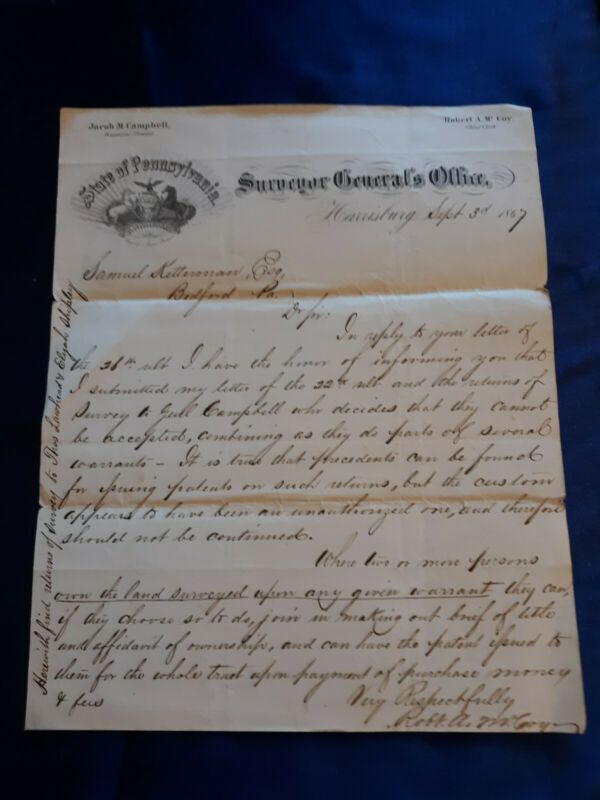 Jacob M Campbell,
Robert A. Mc Coy
Chief Clerk
State of Pennsylvania.
Surveyor General's Office,
Harrisburg Sept 3d 1867
Samuel Ketterman Esq
Bedford Pa.
Dr Sir:
In reply to your letter of
the 26th ult I have the honor of informing you that
I submitted my letter of the 22nd ult and the returns of
survey to Genl Campbell who decides that they cannot
be accepted, combining as they do parts of several
warrants - It is true that precedents can be found
for issuing patents on such returns, but the custom
appears to have been an unauthorized one, and therefore
should not be continued.
Where two or more persons
own the land surveyed upon any given warrant they can,
if they choose so to do, join in making out brief of title
and affidavit of ownership, and can have the patent issued to
them for the whole tract upon payment of purchase money
& fees
Very Respectfully
Robt. A. McCoy
Herewith find returns of survey to Thos Lawhead & Elijah Shipley